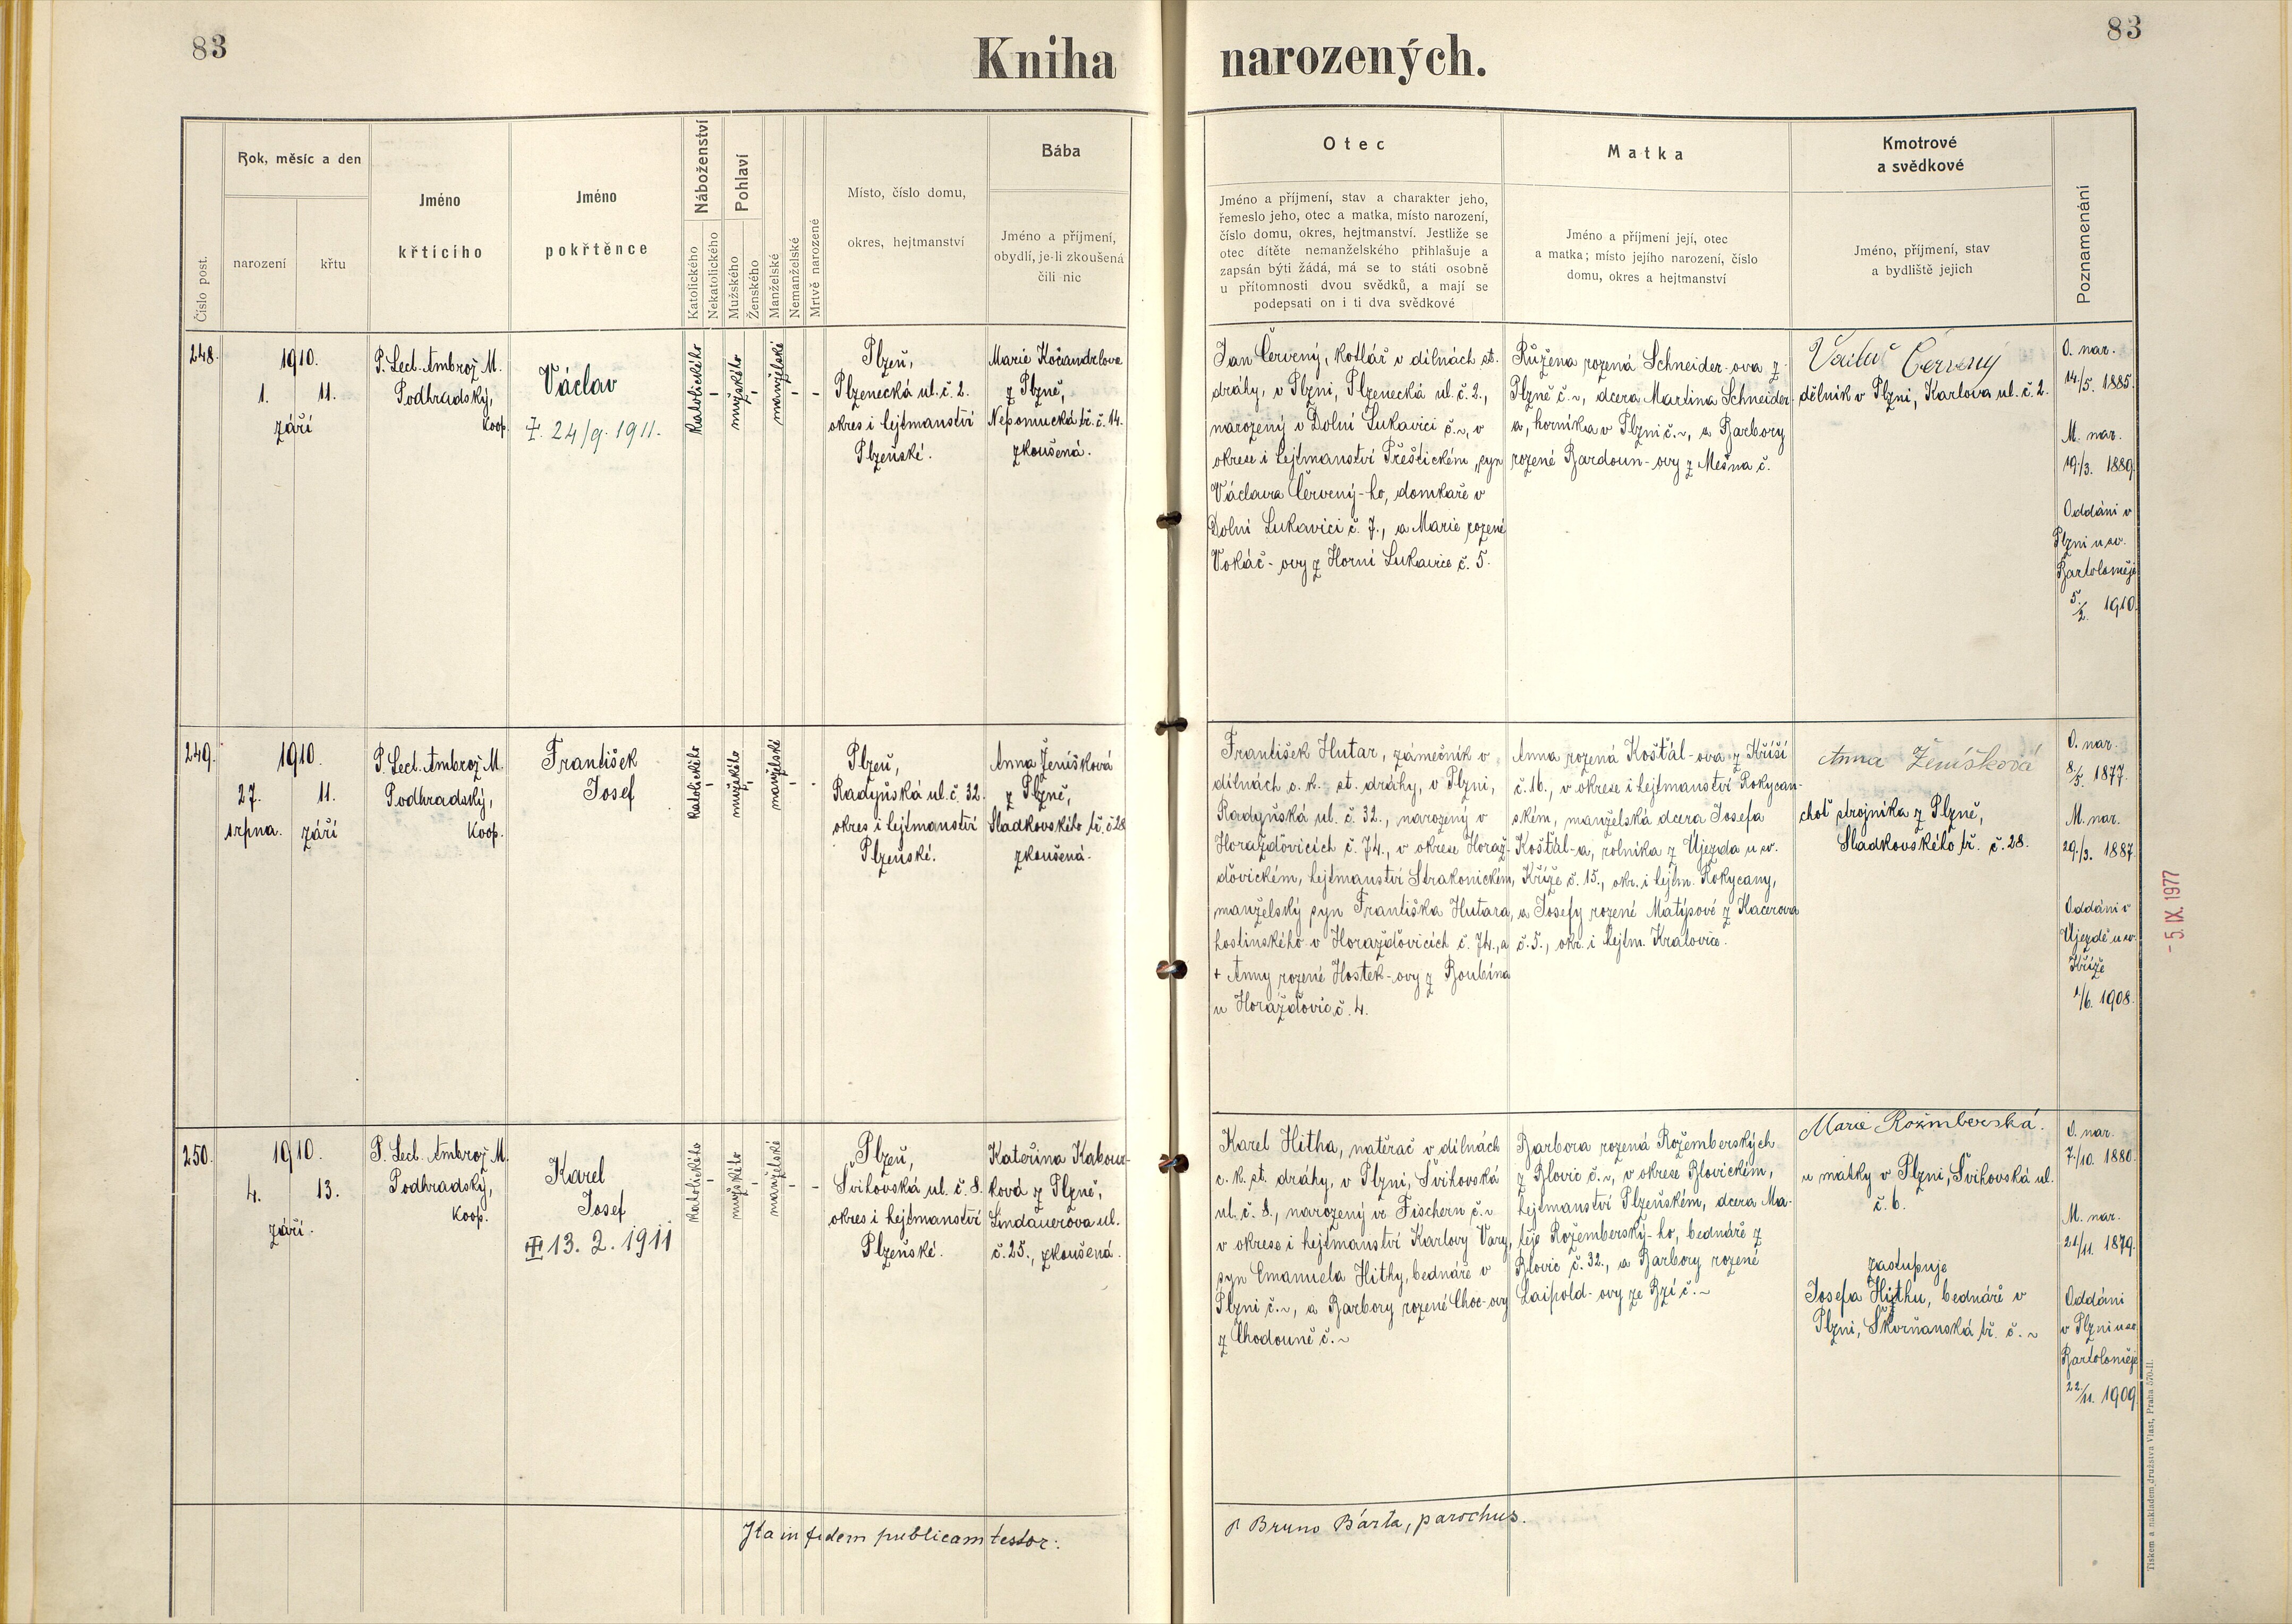 83
Kniha narozených.
83
Číslo post.
Rok, měsíc a den
narození
křtu
Jméno
křtícího
Jméno
pokřtěnce
Náboženství
Katolického
Nekatolického
Pohlaví
Mužského
Ženského
Manželské
Nemanželské
Mrtvě narozené
Místo, číslo domu,
okres, hejtmanství
Bába
Jméno a příjmení,
obydlí, je-li zkoušená
čili nic
Otec
Jméno a příjmení, stav a charakter jeho,
řemeslo jeho, otec a matka, místo narození,
číslo domu, okres, hejtmanství. Jestliže se
otec dítěte nemanželského přihlašuje a
zapsán býti žádá, má se to státi osobně
u přítomnosti dvou svědků, a mají se
podepsati on i ti dva svědkové
Matka
Jméno a příjmení její, otec
a matka; místo jejího narození, číslo
domu, okres a hejtmanství
Kmotrové
a svědkové
Jméno, příjmení, stav
a bydliště jejich
Poznamenání
248.
1910.
1. 11.
září
P. Lect. Ambrož M.
Podhradský,
koop.
Václav
24/9. 1911.
katolického
-
mužského
-
manželské
-
-
Plzeň,
Plzenecká ul. č. 2.
okres i hejtmanství
Plzeňské.
Marie Kočandrlova
z Plzně,
Nepomucká tř. č. 14.
zkoušená.
Jan Červený, kotlář v dílnách st.
dráhy, v Plzni, Plzenecká ul. č. 2.,
narozený v Dolní Lukavici č. ~, v
okrese i hejtmanství Přeštickém, syn
Václava Červený-ho, domkaře v
Dolní Lukavici č. 7., a Marie rozené
Vokáč-ovy z Horní Lukavice č. 5.
Růžena rozená Schneider-ova z
Plzně č. ~, dcera Martina Schneider-
a, horníka v Plzni č. ~, a Barbory
rozené Bardoun-ovy z Mešna č.
Červený
dělník v Plzni, Karlova ul. č. 2.
O. nar.
14/5. 1885.
M. nar.
19/3. 1889.
Oddáni v
Plzni u sv.
Bartoloměje
5./2. 1910.
249.
1910.
27. 11.
srpna. září
P. Lect. Ambrož M.
Podhradský,
koop.
František
Josef
katolického
-
mužského
-
manželské
-
-
Plzeň,
Radyňská ul. č. 32.
okres i hejtmanství
Plzeňské.
Anna Ženíšková
z Plzně,
Sladkovského tř. č. 28
zkoušená.
František Hutar, zámečník v
dílnách c. k. st. dráhy, v Plzni,
Radyňská ul. č. 32., narozený v
Horažďovicích č. 74., v okrese Horaž-
ďovickém, hejtmanství Strakonickém,
manželský syn Františka Hutara,
hostinského v Horažďovicích č. 74., a
+ Anny rozené Hostek-ovy z Boubína
u Horažďovic č. 4.
Anna rozená Košťál-ova z Kříší
č. 16., v okrese i hejtmanství Rokycan-
ském, manželská dcera Josefa
Košťál-a, rolníka z Újezda u sv.
Kříže č. 15., okr. i hejtm. Rokycany,
a Josefy rozené Matýsové z Kacerova
č. 5., okr. i hejtm. Kralovice.
Anna Ženíšková
choť strojníka z Plzně,
Sladkovského tř. č. 28.
O. nar.
8/5. 1877.
M. nar.
29./3. 1887.
Oddáni v
Újezdě u sv.
Kříže
1/6. 1908.
- 5. IX. 1977
250.
1910.
4. 13.
září.
P. Lect. Ambrož M.
Podhradský,
koop.
Karel
Josef
13. 2. 1911
katolického
-
mužského
-
manželské
-
-
Plzeň,
Švihovská ul. č. 8.
okres i hejtmanství
Plzeňské.
Kateřina Kabour-
ková z Plzně,
Lindauerova ul.
č. 25., zkoušená.
Karel Hitha, natěrač v dílnách
c. k. st. dráhy, v Plzni, Švihovská
ul. č. 8., narozený ve Fischern č. ~
v okrese i hejtmanství Karlovy Vary,
syn Emanuela Hithy, bednáře v
Plzni č. ~, a Barbory rozené Choc-ovy
z Chodouně č. ~
Barbora rozená Rožemberských
z Blovic č. ~, v okrese Blovickém,
hejtmanství Plzeňském, dcera Ma-
těje Rožemberský-ho, bednáře z
Blovic č. 32., a Barbory rozené
Laipold-ovy ze Bzí č. ~
Marie Rožmberská.
u matky v Plzni, Švihovská ul.
č. 6.
zastupuje
Josefa Hithu, bednáře v
Plzni, Skvrňanská tř. č. ~
O. nar.
7./10. 1880.
M. nar.
21/11. 1879.
Oddáni
v Plzni u sv.
Bartoloměje
22./11. 1909.
Ita in fidem publicam testor:
P. Bruno Bárta, parochus.
Tiskem a nákladem družstva Vlast, Praha 570-II.